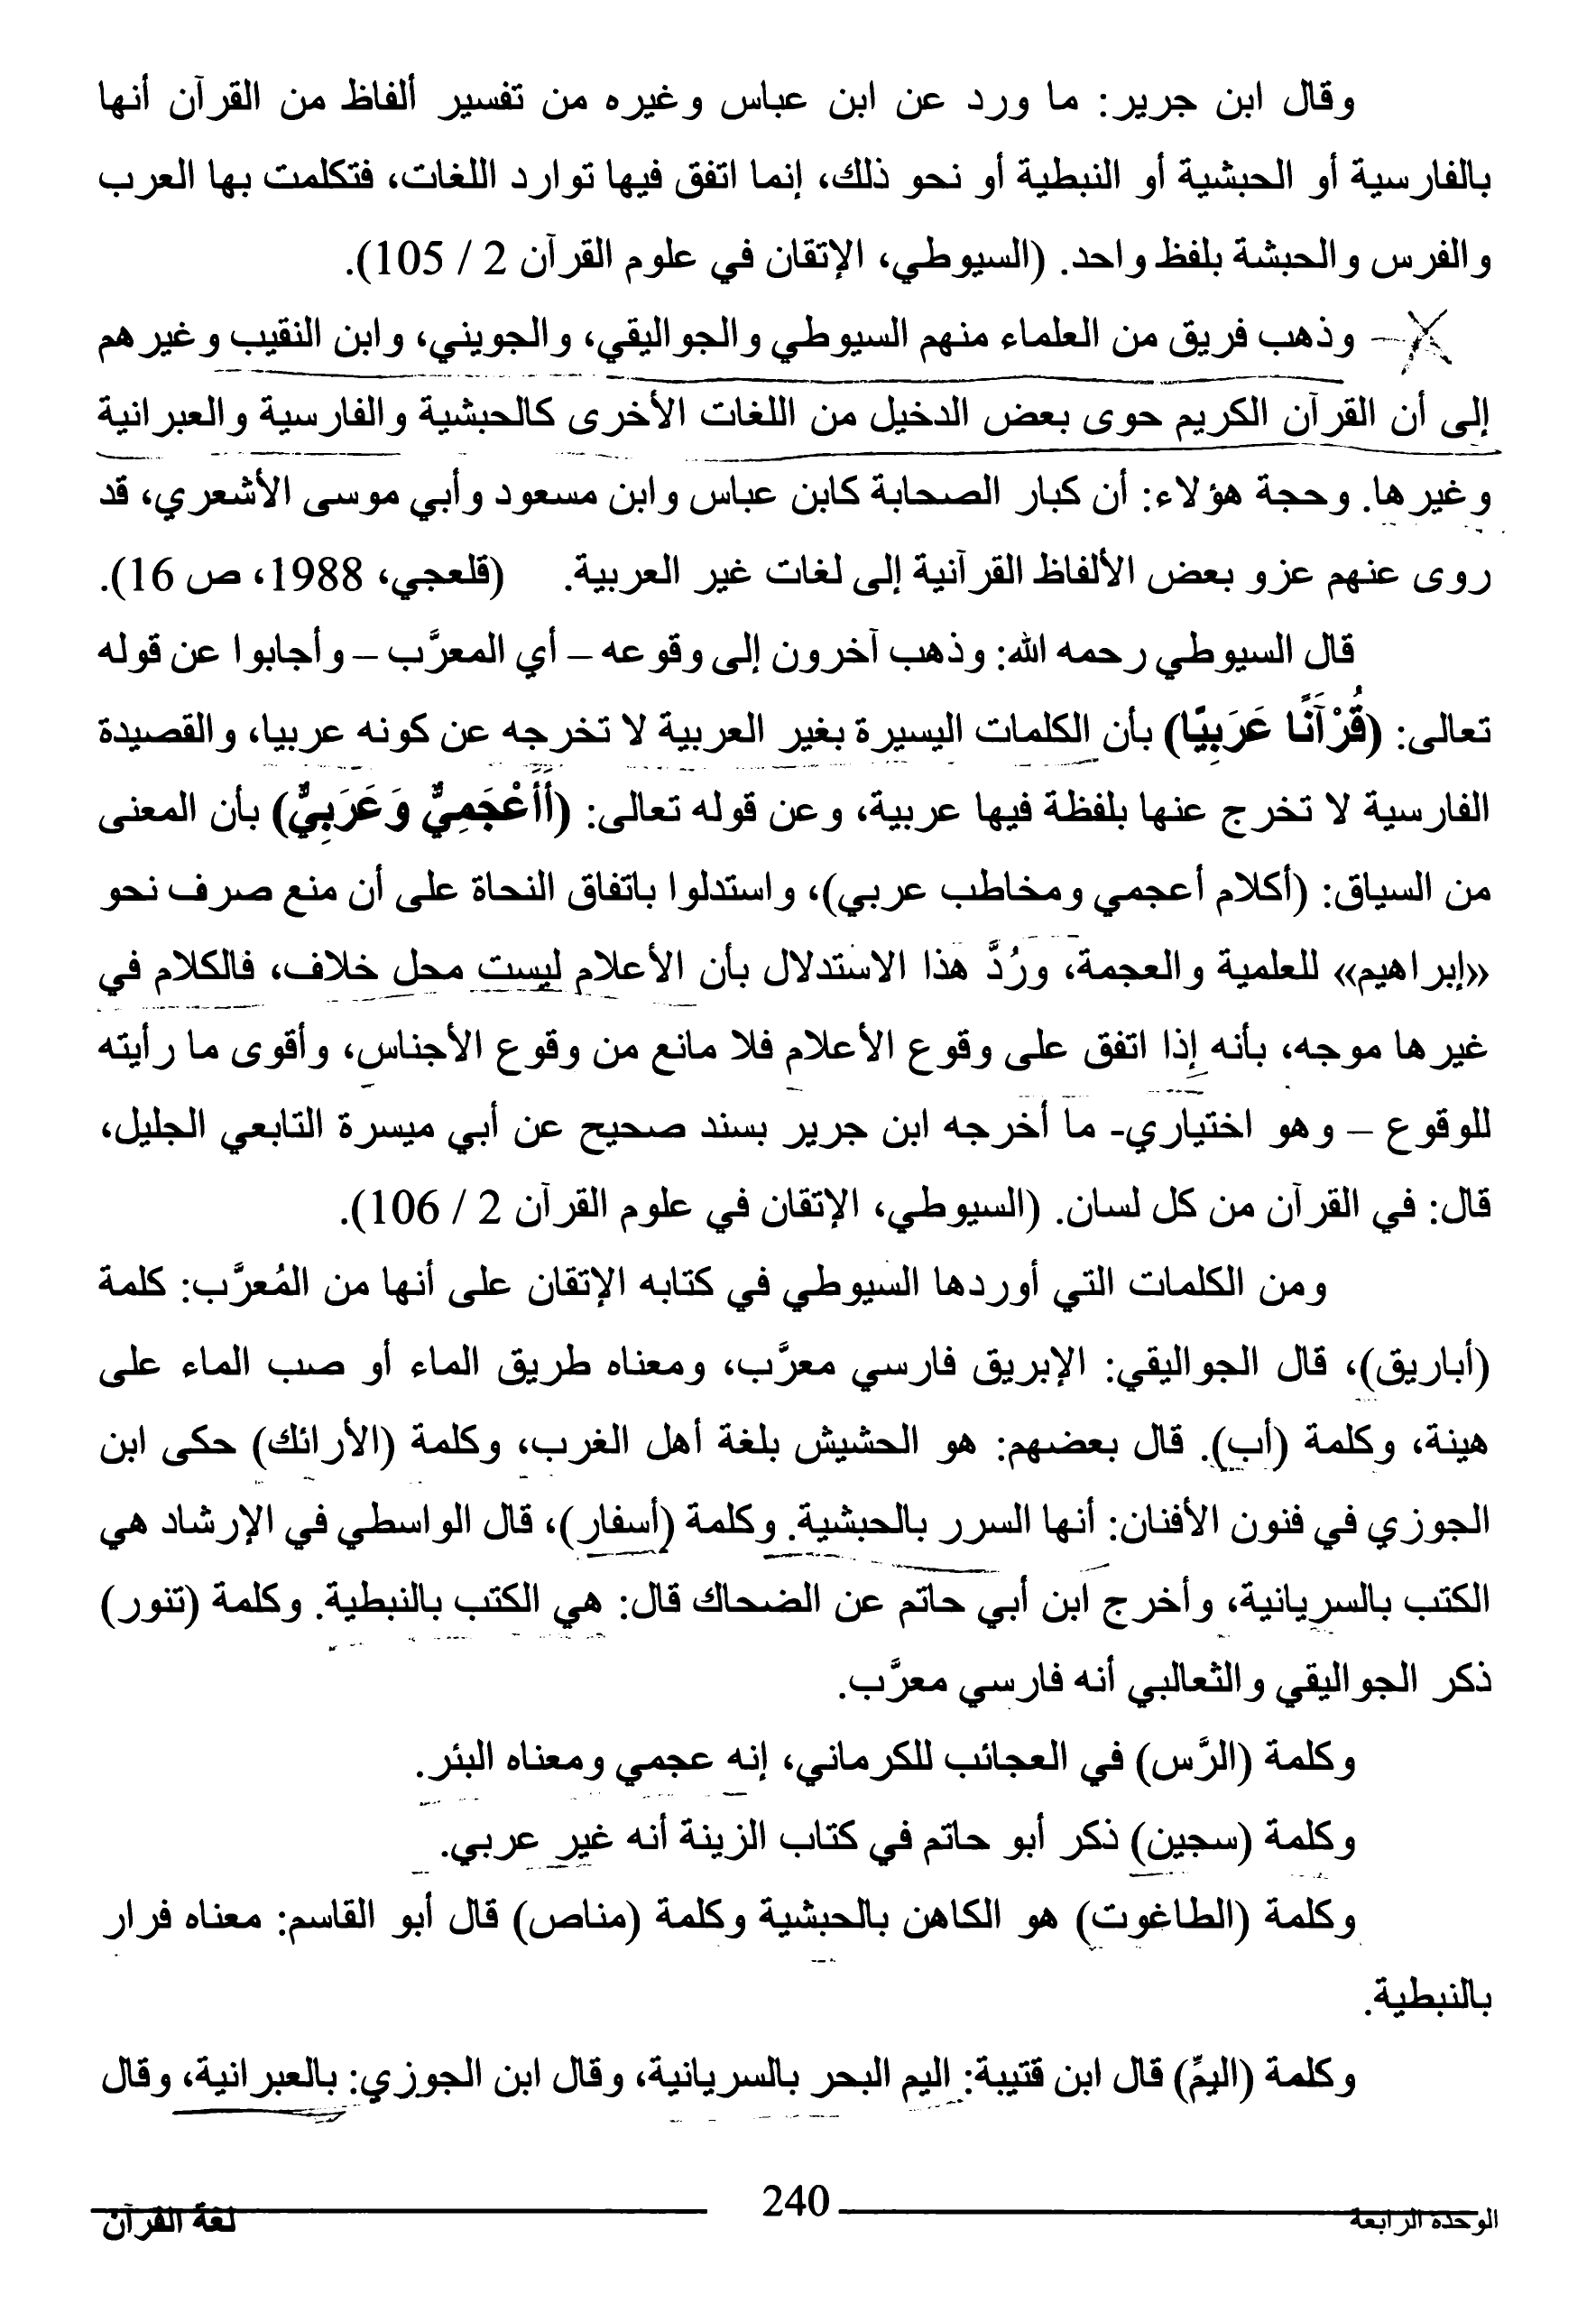 وقال ابن جرير: ما ورد عن ابن عباس وغيره من تفسير ألفاظ من القرآن أنها
بالفارسية أو الحبشية أو النبطية أو نحو ذلك، إنما اتفق فيها توارد اللغات، فتكلمت بها العرب
والفرس والحبشة بلفظ واحد. (السيوطي، الإتقان في علوم القرآن 2 / 105).
– وذهب فريق من العلماء منهم السيوطي والجواليقي، والجويني، وابن النقيب وغيرهم
إلى أن القرآن الكريم حوى بعض الدخيل من اللغات الأخرى كالحبشية والفارسية والعبرانية
وغيرها. وحجة هؤلاء: أن كبار الصحابة كابن عباس وابن مسعود وأبي موسى الأشعري، قد
روى عنهم عزو بعض الألفاظ القرآنية إلى لغات غير العربية. (قلعجي، 1988، ص 16).
قال السيوطي رحمه الله: وذهب آخرون إلى وقوعه – أي المعرَّب – وأجابوا عن قوله
تعالى: (قُرْآنًا عَرَبِيًا) بأن الكلمات اليسيرة بغير العربية لا تخرجه عن كونه عربيا، والقصيدة
الفارسية لا تخرج عنها بلفظة فيها عربية، وعن قوله تعالى: (أَأَعْجَمِيٌّ وَعَرَبِيٌّ) بأن المعنى
من السياق: (أكلام أعجمي ومخاطب عربي)، واستدلوا باتفاق النحاة على أن منع صرف نحو
«إبراهيم» للعلمية والعجمة، ورُدَّ هذا الاستدلال بأن الأعلام ليست محل خلاف، فالكلام في
غيرها موجه، بأنه إذا اتفق على وقوع الأعلام فلا مانع من وقوع الأجناس، وأقوى ما رأيته
للوقوع – وهو اختياري- ما أخرجه ابن جرير بسند صحيح عن أبي ميسرة التابعي الجليل،
قال: في القرآن من كل لسان. (السيوطي، الإتقان في علوم القرآن 2 / 106).
ومن الكلمات التي أوردها السيوطي في كتابه الإتقان على أنها من المُعرَّب: كلمة
(أباريق)، قال الجواليقي: الإبريق فارسي معرَّب، ومعناه طريق الماء أو صب الماء على
هينة، وكلمة (أب). قال بعضهم: هو الحشيش بلغة أهل الغرب، وكلمة (الأرائك) حكى ابن
الجوزي في فنون الأفنان: أنها السرر بالحبشية. وكلمة (أسفار)، قال الواسطي في الإرشاد هي
الكتب بالسريانية، وأخرج ابن أبي حاتم عن الضحاك قال: هي الكتب بالنبطية. وكلمة (تنور)
ذكر الجواليقي والثعالبي أنه فارسي معرَّب.
وكلمة (الرَّس) في العجائب للكرماني، إنه عجمي ومعناه البئر.
وكلمة (سجين) ذكر أبو حاتم في كتاب الزينة أنه غير عربي.
وكلمة (الطاغوت) هو الكاهن بالحبشية وكلمة (مناص) قال أبو القاسم: معناه فرار
بالنبطية.
وكلمة (اليمِّ) قال ابن قتيبة: اليم البحر بالسريانية، وقال ابن الجوزي: بالعبرانية، وقال
الوحدة الرابعة 240 لغة القرآن